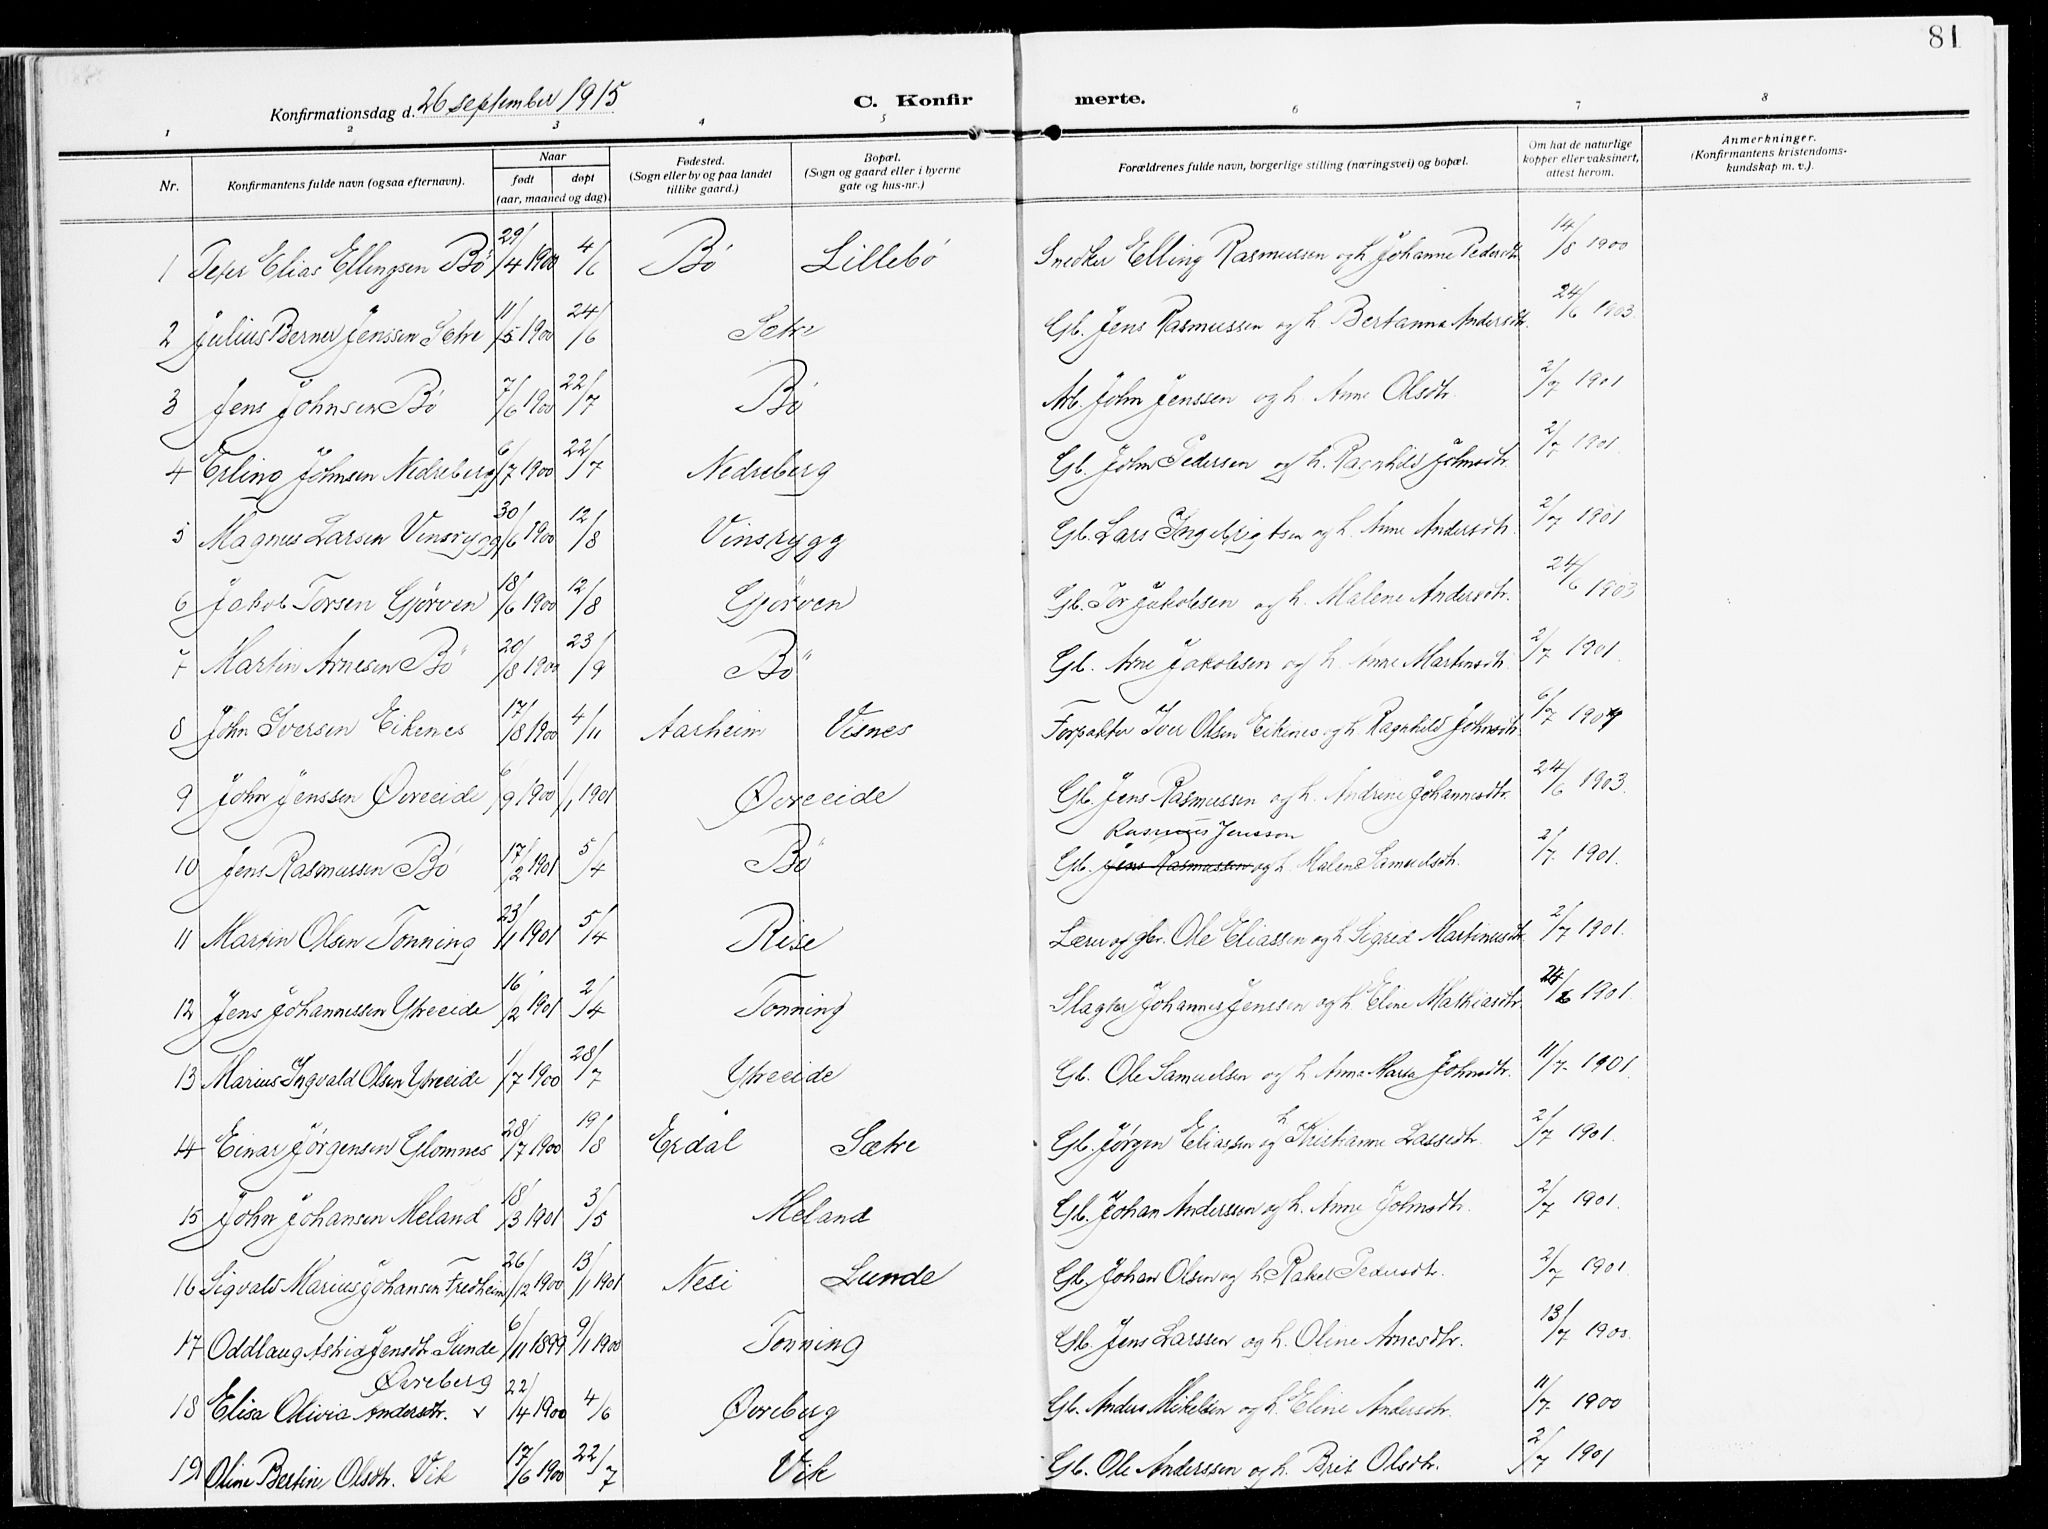 81
Konfirmationsdag d. 26 september 1915 C. Konfirmerte.
1 2 3 4 5 6 7 8
Nr. Konfirmantens fulde navn (ogsaa efternavn). Naar født døpt (aar, maaned og dag). Fødested. (Sogn eller by og paa landet tillike gaard.) Bopæl. (Sogn og gaard eller i byerne gate og hus-nr.) Forældrenes fulde navn, borgerlige stilling (næringsvei) og bopæl. Om hat de naturlige kopper eller vaksinert, attest herom. Anmerkninger. (Konfirmantens kristendoms-kundskap m. v.).
1 Peter Elias Ellingsen Bö 29/4 1900 4/6 Bö Lillebö Snedker Elling Rasmussen og h. Johanne Pedersdtr. 14/8 1900
2 Julius Berner Jenssen Setre 11/5 1900 24/6 Setre Gb. Jens Rasmussen og h. Bertanna Andersdtr. 24/6 1903
3 Jens Johnsen Bö 7/6 1900 22/7 Bö Arb. John Jenssen og h. Anne Olsdtr. 2/7 1901
4 Erling Johnsen Nedreberg 6/7 1900 22/7 Nedreberg Gb. John Pedersen og h. Ragnhild Johnsdtr. 2/7 1901
5 Magnus Larsen Vinsrygg 30/6 1900 12/8 Vinsrygg Gb. Lars Ingebrigtsen og h. Anne Andersdtr. 2/7 1901
6 Jakob Torsen Gjörven 18/6 1900 12/8 Gjörven Gb. Tor Jakobsen og h. Malene Andersdtr. 24/6 1903
7 Martin Arnesen Bö 20/8 1900 23/9 Bö Gb. Arne Jakobsen og h. Anne Martinsdtr. 2/7 1901
8 John Iversen Eikenes 17/8 1900 4/11 Aarheim Visnes Forpakter Iver Olsen Eikenes og h. Ragnhild Johnsdtr. 6/7
9 John Jenssen Øvreeide 6/9 1900 1/1 1901 Øvreeide Gb. Jens Rasmussen og h. Andrine Johannesdtr. 24/6 1903.
Rasmus Jensson
10 Jens Rasmussen Bö 17/2 1901 5/4 Bö Gb. Jens Rasmussen og h. Malene Samuelsdtr. 2/7 1901.
11 Martin Olsen Tonning 23/1 1901 5/4 Rise Lærer og gbr. Ole Eliassen og h. Sigrid Martinusdtr. 2/7 1901.
12 Jens Johannessen Ytreeide 16/2 1901 2/4 Tonning Slagter Johannes Jenssen og h. Eline Mathiasdtr. 24/6 1901
13 Marius Ingvald Olsen Ytreeide 1/7 1900 28/7 Ytreeide Gb. Ole Samuelsen og h. Anna Marta Johnsdtr. 11/7 1901.
14 Einar Jörgensen Glomnes 28/7 1900 19/8 Erdal Sætre Gb. Jörgen Eliassen og h. Kristianne Lassedtr. 2/7 1901.
15 John Johansen Meland 18/3 1901 3/5 Meland Gb. Johan Anderssen og h. Anne Johnsdtr. 2/7 1901.
16 Sigvald Marius Johansen Fredheim 26/12 1900 13/1 1901 Nesi Lunde Gb. Johan Olsen og h. Rakel Pedersdtr. 2/7 1901
17 Oddlaug Astrid Jensdtr. Sunde 6/11 1899 9/1 1900 Tonning Gb. Jens Larssen og h. Oline Arnesdtr. 13/7 1900.
Øvreberg
18 Elisa Olivia Andersdtr. v 22/4 1900 4/6 Øvreberg Gb. Anders Mikelsen og h. Eline Andersdtr. 11/7 1900
19 Oline Bertine Olsdtr. Vik 17/6 1900 22/7 Vik Gb. Ole Anderssen og h. Brit Olsdtr. 2/7 1901